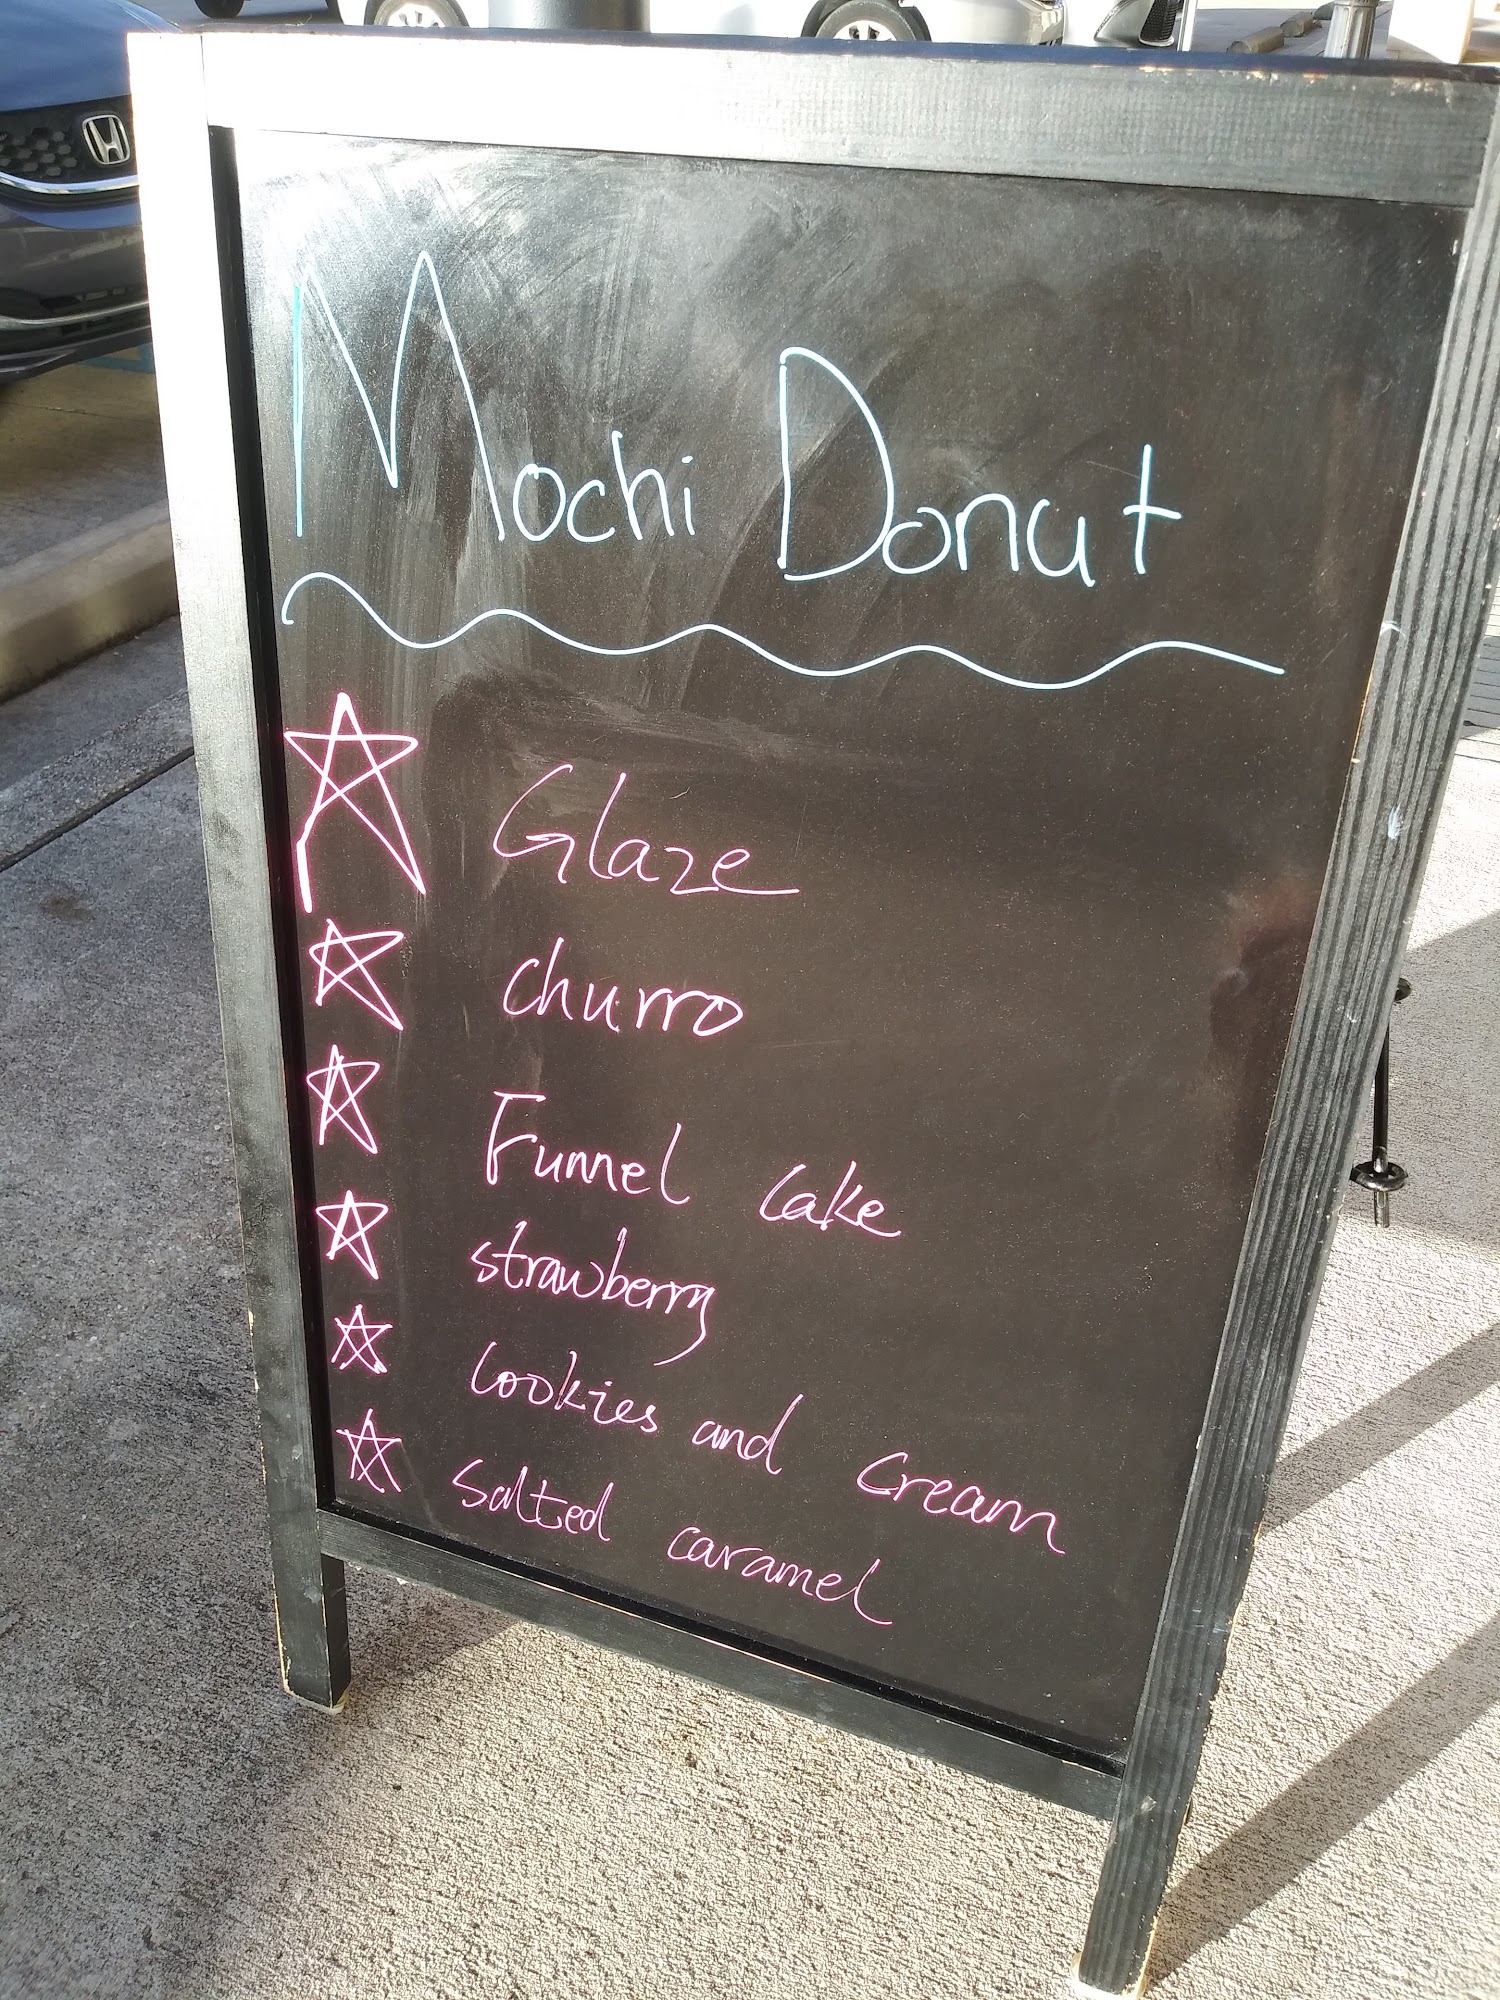 Mochi Donut
Glaze
churro
Funnel cake
strawberry
Cookies and cream
salted caramel